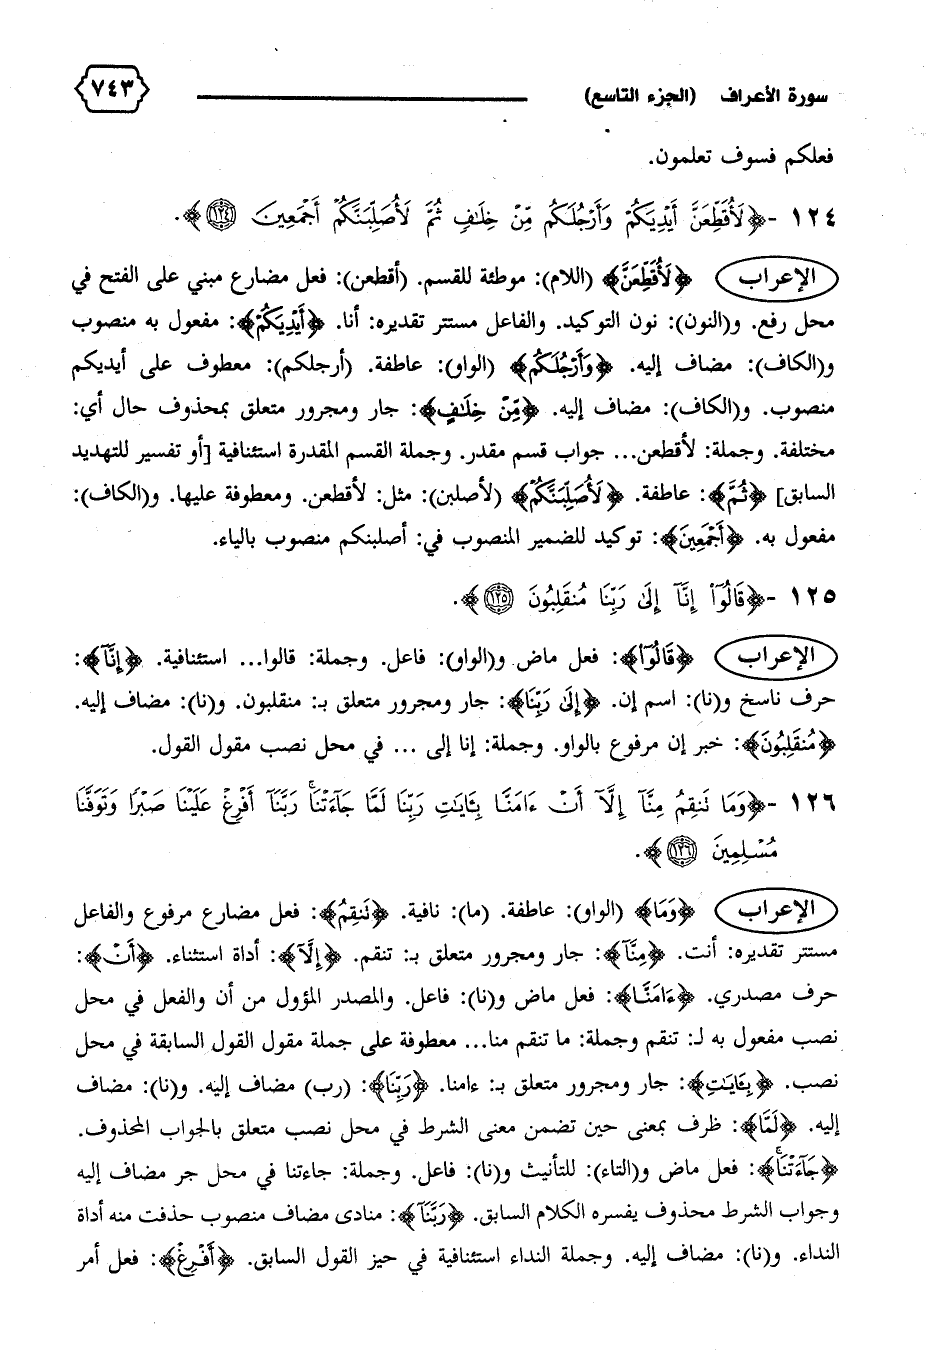 سورة الأعراف (الجزء التاسع) ٧٤٣
فعلكم فسوف تعلمون.
١٢٤ -﴿لَأُقَطِّعَنَّ أَيْدِيَكُمْ وَأَرْجُلَكُم مِّنْ خِلَٰفٍ ثُمَّ لَأُصَلِّبَنَّكُمْ أَجْمَعِينَ ١٢٤﴾.
الإعراب ﴿لَأُقَطِّعَنَّ﴾ (اللام): موطئة للقسم. (أقطعن): فعل مضارع مبني على الفتح في
محل رفع. و(النون): نون التوكيد. والفاعل مستتر تقديره: أنا. ﴿أَيْدِيَكُمْ﴾: مفعول به منصوب
و(الكاف): مضاف إليه. ﴿وَأَرْجُلَكُم﴾ (الواو): عاطفة. (أرجلكم): معطوف على أيديكم
منصوب. و(الكاف): مضاف إليه. ﴿مِّنْ خِلَٰفٍ﴾: جار ومجرور متعلق بمحذوف حال أي:
مختلفة. وجملة: لأقطعن... جواب قسم مقدر. وجملة القسم المقدرة استئنافية [أو تفسير للتهديد
السابق] ﴿ثُمَّ﴾: عاطفة. ﴿لَأُصَلِّبَنَّكُمْ﴾ (لأصلبن): مثل: لأقطعن. ومعطوفة عليها. و(الكاف):
مفعول به. ﴿أَجْمَعِينَ﴾: توكيد للضمير المنصوب في: أصلبنكم منصوب بالياء.
١٢٥ -﴿قَالُوٓا۟ إِنَّآ إِلَىٰ رَبِّنَا مُنقَلِبُونَ ١٢٥﴾.
الإعراب ﴿قَالُوٓا۟﴾: فعل ماض و(الواو): فاعل. وجملة: قالوا... استئنافية. ﴿إِنَّآ﴾:
حرف ناسخ و(نا): اسم إن. ﴿إِلَىٰ رَبِّنَا﴾: جار ومجرور متعلق بـ: منقلبون. و(نا): مضاف إليه.
﴿مُنقَلِبُونَ﴾: خبر إن مرفوع بالواو. وجملة: إنا إلى ... في محل نصب مقول القول.
١٢٦ -﴿وَمَا تَنقِمُ مِنَّآ إِلَّآ أَنْ ءَامَنَّا بِـَٔايَٰتِ رَبِّنَا لَمَّا جَآءَتْنَا ۚ رَبَّنَآ أَفْرِغْ عَلَيْنَا صَبْرًا وَتَوَفَّنَا
مُسْلِمِينَ ١٢٦﴾.
الإعراب ﴿وَمَا﴾ (الواو): عاطفة. (ما): نافية. ﴿تَنقِمُ﴾: فعل مضارع مرفوع والفاعل
مستتر تقديره: أنت. ﴿مِنَّآ﴾: جار ومجرور متعلق بـ: تنقم. ﴿إِلَّآ﴾: أداة استثناء. ﴿أَنْ﴾:
حرف مصدري. ﴿ءَامَنَّا﴾: فعل ماض و(نا): فاعل. والمصدر المؤول من أن والفعل في محل
نصب مفعول به لـ: تنقم وجملة: ما تنقم منا... معطوفة على جملة مقول القول السابقة في محل
نصب. ﴿بِـَٔايَٰتِ﴾: جار ومجرور متعلق بـ: ءامنا. ﴿رَبِّنَا﴾: (رب) مضاف إليه. و(نا): مضاف
إليه. ﴿لَمَّا﴾: ظرف بمعنى حين تضمن معنى الشرط في محل نصب متعلق بالجواب المحذوف.
﴿جَآءَتْنَا ۚ﴾: فعل ماض و(التاء): للتأنيث و(نا): فاعل. وجملة: جاءتنا في محل جر مضاف إليه
وجواب الشرط محذوف يفسره الكلام السابق. ﴿رَبَّنَآ﴾: منادى مضاف منصوب حذفت منه أداة
النداء. و(نا): مضاف إليه. وجملة النداء استئنافية في حيز القول السابق. ﴿أَفْرِغْ﴾: فعل أمر